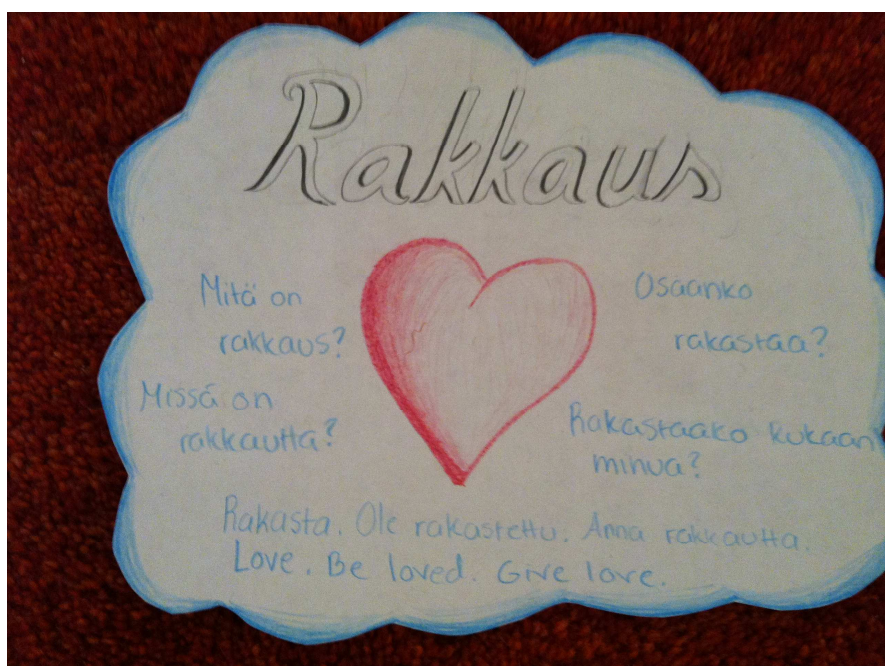 Rakkaus
Mitä on
rakkaus?
Missä on
rakkautta?
Osaanko
rakastaa?
Rakastaako kukaan
minua?
Rakasta. Ole rakastettu. Anna rakkautta.
Love. Be loved. Give love.